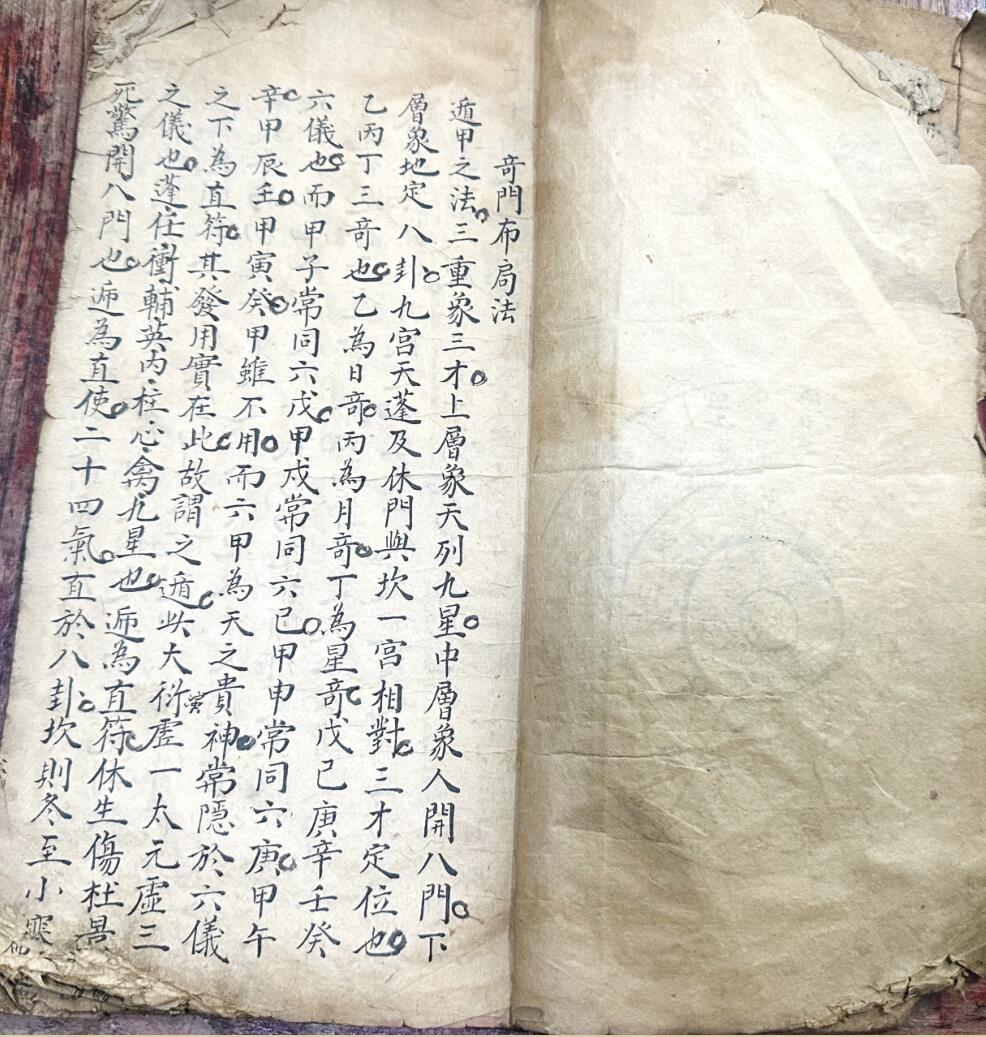 竒門布局法
遁甲之法三重象三才上層象天列九星中層象人開八門下
層象地定八卦九宮天蓬及休門與坎一宮相對三才定位也
乙丙丁三竒也乙為日竒丙為月竒丁為星竒戊己庚辛壬癸
六儀也而甲子常同六戊甲戌常同六己甲申常同六庚甲午
辛甲辰壬甲寅癸甲雖不用而六甲為天之貴神常隱於六儀
之下為直符其發用實在此故謂之遁此大衍虛一太元虛三
之儀也蓬任衝輔英内柱心禽九星也逓為直符休生傷杜景
死驚開八門也逓為直使二十四氣直於八卦坎則冬至小寒